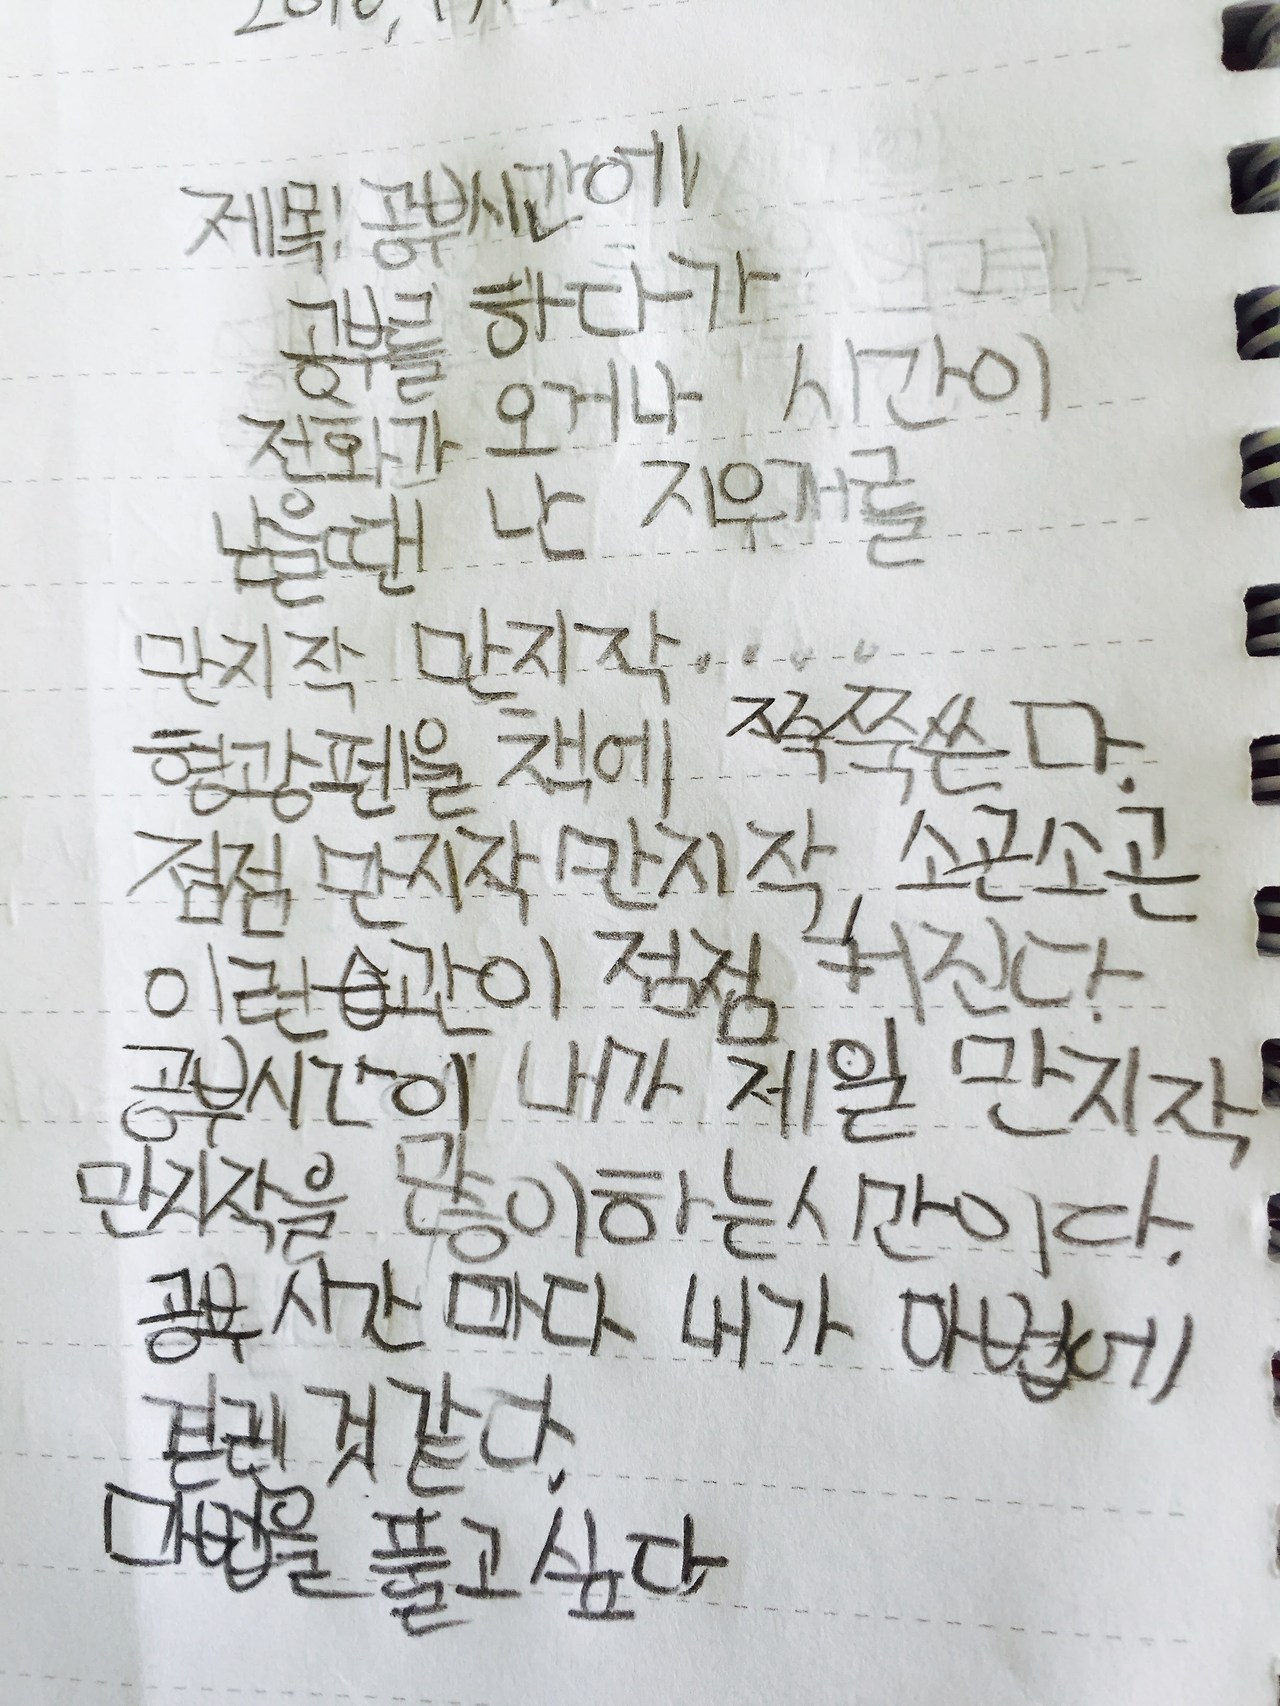 제목! 공부시간에
공부를 하다가
전화가 오거나 시간이
남을땐 난 지우개를
만지작 만지작....
형광펜을 책에 쭉쭉쓴다.
점점 만지작 만지작, 소곤소곤
이런습관이 점점 커진다.
공부시간이 내가 제일 만지작
만지작을 많이하는시간이다.
공부 시간 마다 내가 마법에
걷린 것 같다.
마법을 풀고싶다